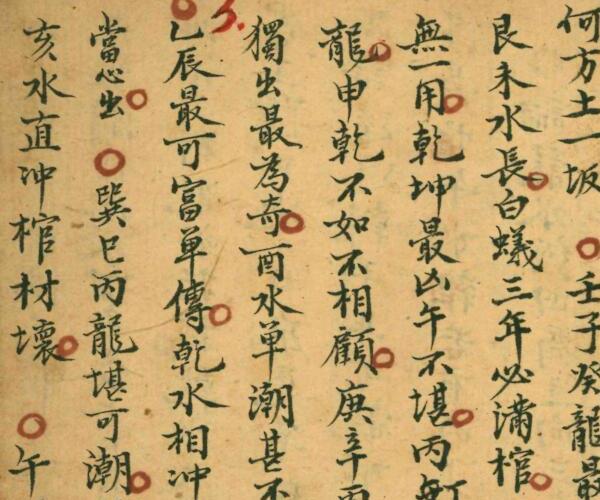 何方土一坂 壬子癸龍最
艮未水長白蟻三年必滿棺
無一用乾坤最凶午不堪丙
龍申乾不如不相顧庚辛酉
獨出最為奇酉水单潮甚不
乙辰最可富单傳乾水相冲
當心出 巽巳丙龍堪可潮
亥水直冲棺材壞 午